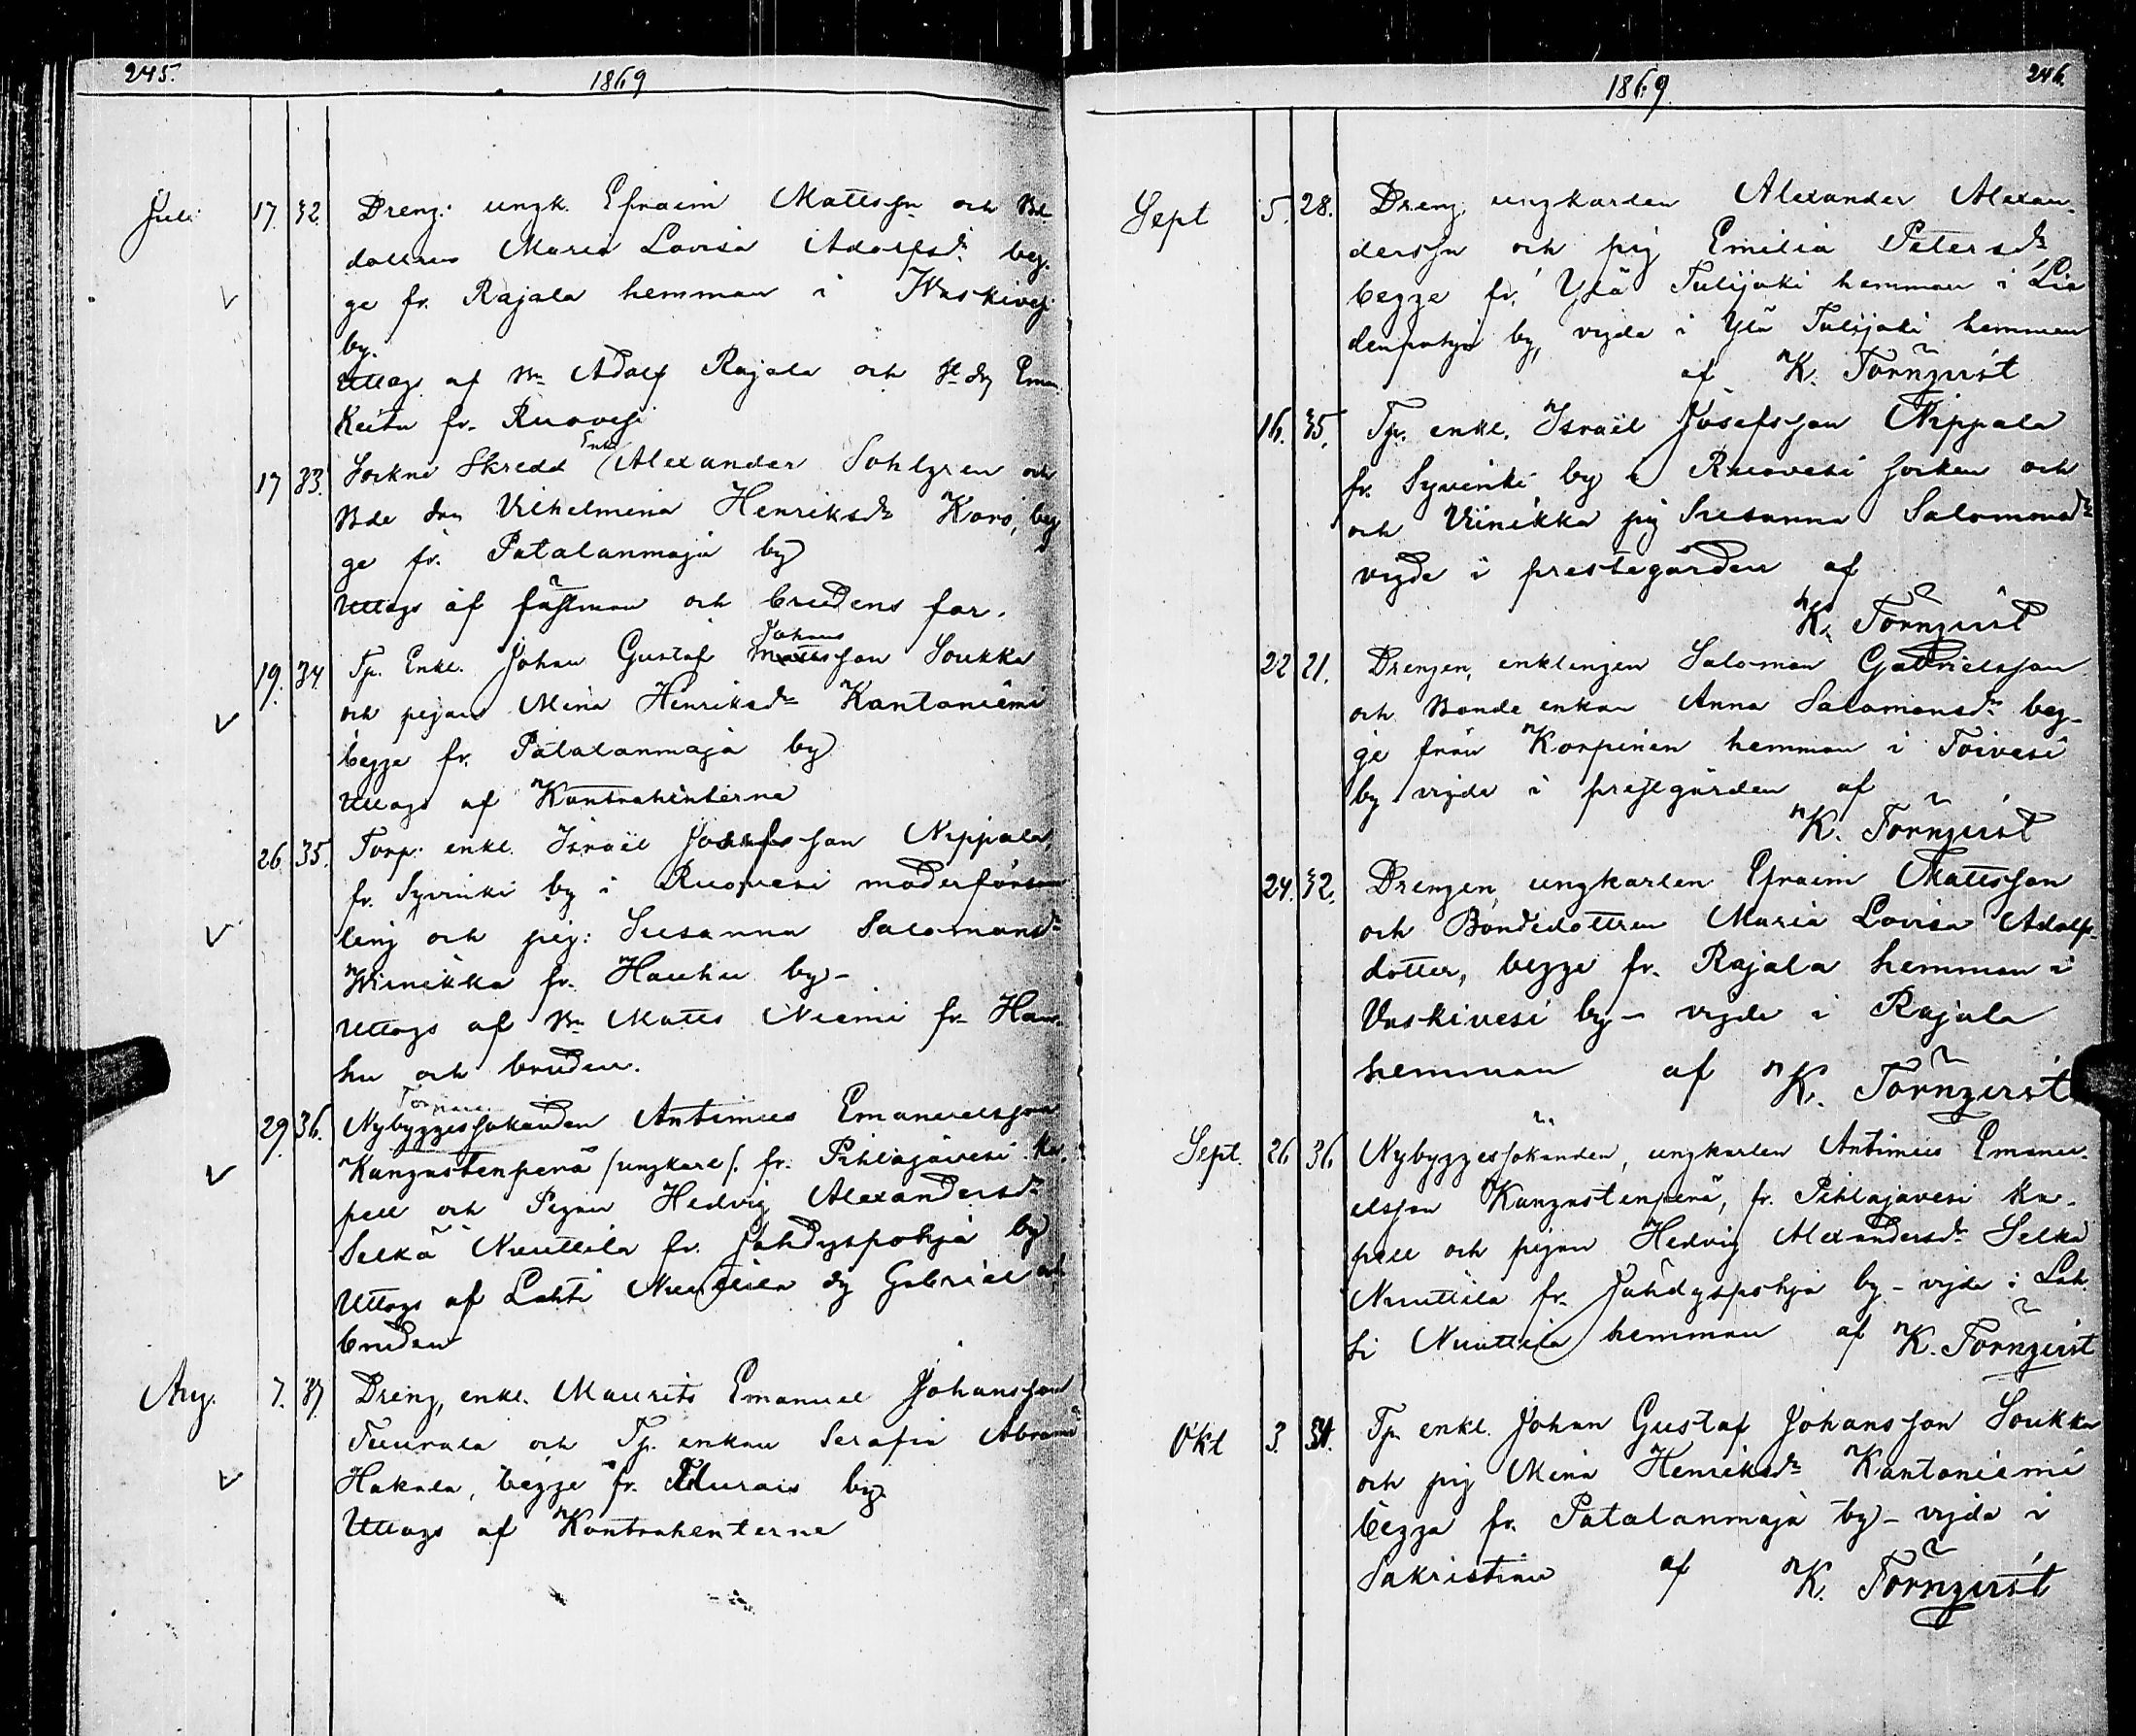 245.
1869
Juli 17. 32. Dreng. ungk. Efraim Mattssn och Bd
dottren Maria Lovisa Adolfsdr beg-
ge fr. Rajala hemman i Waskivesi
by.
Uttogs af Bn Adolf Rajala och
Keitu fr. Ruovesi
17 33. Sockne Skredd Enkl Alexander Sohlgren och
Bde Vilhelmina Henriksdr Koro, beg
ge fr. Patalanmaja by
Uttogs af fästman och brudens far.
19. 34. Tp. Enkl. Johan Gustaf Johans Mattsson Soukka
och pigan Mina Henriksdr Kantoniemi
begge fr. Patalanmaja by
Uttogs af Kontrahenterne
26. 35. Torp. enkl. Israël Josefsson Nippala,
fr. Syvinki by i Ruovesi moderförsam
ling och pig: Susanna Salomonsdr
Winikka fr. Hauhu by-
Uttogs af Bn Matts Niemi fr. Hau-
hu och bruden.
29. 36. Nybyggessökanden Antimus Emanuelsson
Kangastenperä /ungkarl/. fr. Pihlajavesi Ka-
pell och Pigan Hedvig Alexandersdr
Selkä Nuuttila fr. Jahdyspohja by
Uttogs af Lahti Nuuttila Gabriel och
bruden
Aug. 7. 37. Dreng, enkl. Maurits Emanuel Johansson
Tuurala och Tp. enkan Serafia Abramsdr
Hakala, begge fr. by.
Uttogs af Kontrahenterne
1869.
246.
Sept 5. 28. Dreng. ungkarlen Alexander Alexan-
derssn och pig Emilia Petersdr
begge fr. Ylä Tulijoki hemman i Lia
denpohja by, vigde i Ylä Tulijoki hemman
af K. Törnqvist
16. 35. Tp. enkl. Israël Josefsson Nippala
fr. Syvinki by i Ruovesi socken och
och Viinikka pig Susanna Salomonsdr
vigde i prestegården af
K. Törnqvist
22 21. Drengen, enklingen Salomon Gabrielsson
och Bonde enkan Anna Salomonsdr beg-
ge från Korpinen hemman i Toivesi
by vigde i prestgården af
K. Törnqvist
24. 32. Drengen ungkarlen Efraim Mattsson
och Bondedottren Maria Lovisa Adolfs-
dotter, begge fr. Rajala hemman i
Vaskivesi by- vigde i Rajala
hemman af K. Törnqvist
Sept. 26 36 Nybyggessökanden, ungkarlen Antimus Emanu-
elsson Kangastenperä, fr. Pihlajavesi Ka-
pell och pigan Hedvig Alexandersdr Selkä
Nuuttila fr. Jahdyspohja by- vigde i Lah
ti Nuuttila hemman af K. Törnqvist
Okt 3. 34. Tp. enkl. Johan Gustaf Johansson Soukka
och pig Mina Henriksdr Kantoniemi
begge fr. Patalanmaja by- vigde i
Sakristian af K. Törnqvist